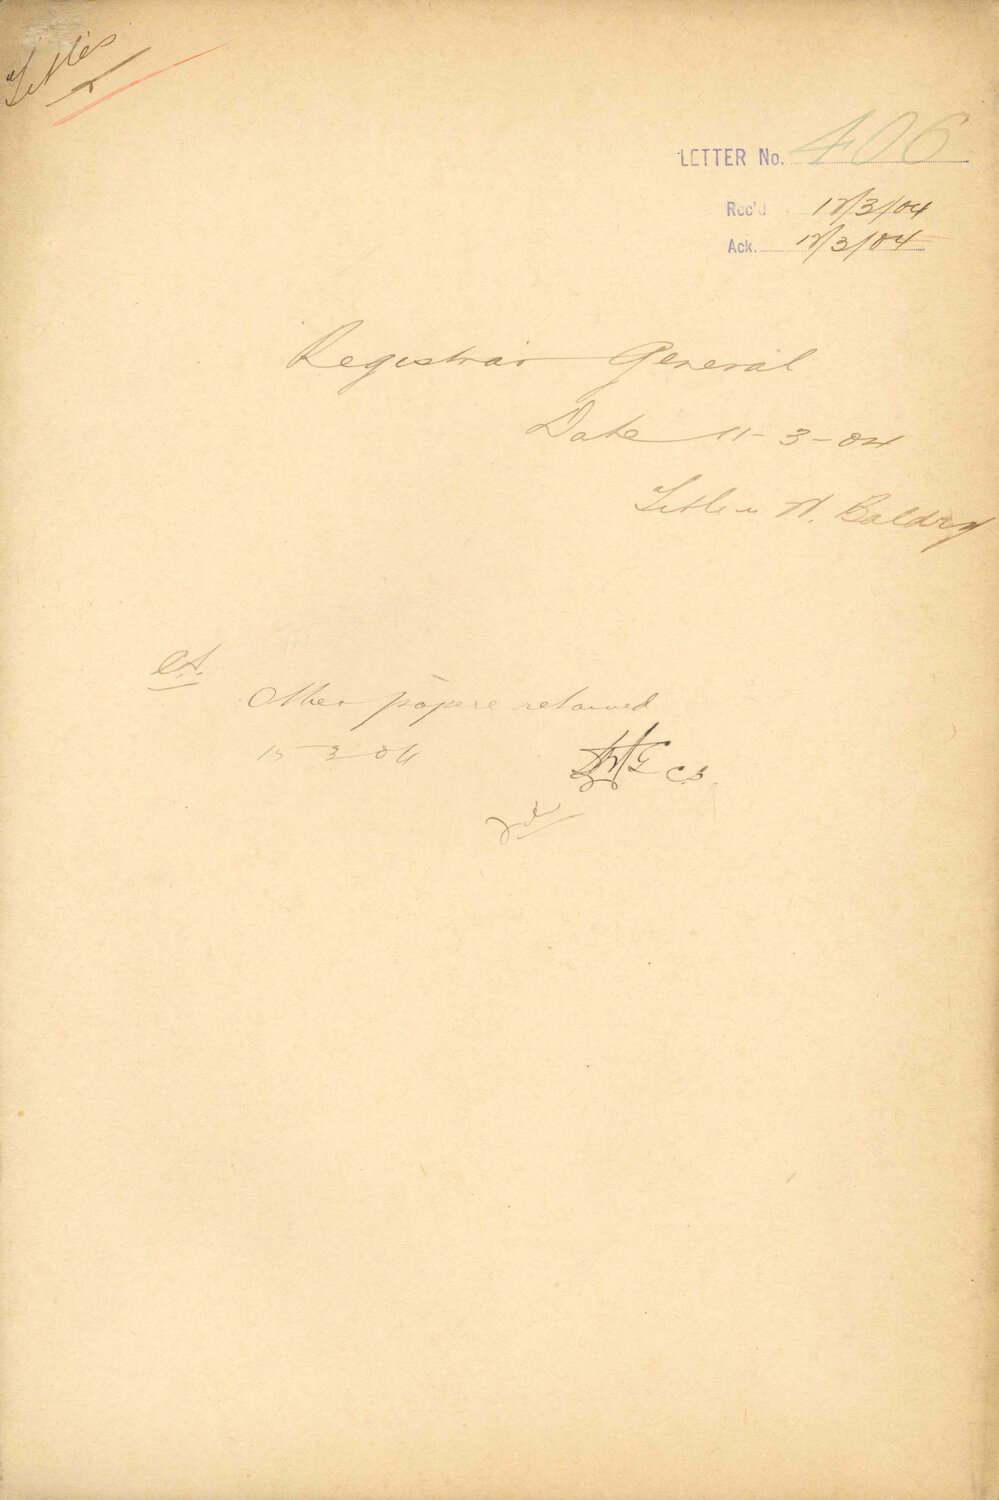 Titles
LETTER No. 406
Rec'd 12/3/04
Ack. 12/3/04
Registrar General
Date 11-3-04
Titles W. Baldry
Other papers retained
15 3 04